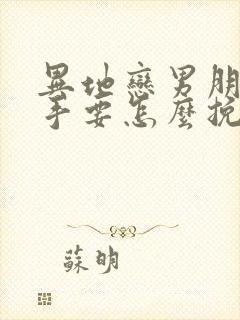 異地戀男朋
手要怎麼挽
蘇明